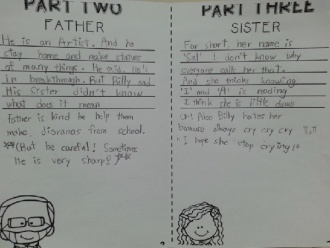 PART TWO
FATHER
He is an Artist. And he
stay home and make statues
of many things. He said, he's
in breakthrough. But Billy and
His Sister didn't know
what does it mean
Father is kind he help them
make dioramas from school.
**(But be careful! Sometimes
He is very sharp! **
PART THREE
SISTER
For short, her name is
"Sal" I don't know why
everyone calls her that.
And she thinks knowing
"I" and "A" is reading
I think she is little dumb
Oh! Also Billy hates her
because always cry cry cry
"I hope she stop crying!"